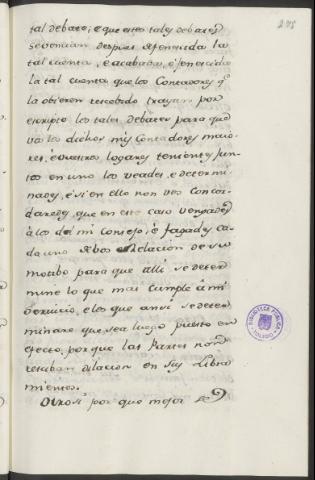 275
tal debate; e que estos tales debates
se vencian despues de fenecida la
tal cuenta, e acabada, e fenecida
la tal cuenta que los Contadores qᵉ
la obieren rescebido trayan por
escripto los tales debates para que
vos los dichos mis Contadores maio-
res, e vuestros logares tenientes jun-
tos en uno los veades, e determi-
nades, e si en ello non vos concor-
daredes, que en este caso vengades
a los del mi Consejo, e fagades ca-
da uno de vos Relacion de su
motibo para que alli se deter
mine lo que mas cumple a mi
servicio, e los que ansi se deter
minare que sea luego puesto en
efecto, por que las Partes non
resciban dilacion en sus Libra
mientos.
Otrosi por que mejor se
BIBLIOTECA PUBLICA
TOLEDO